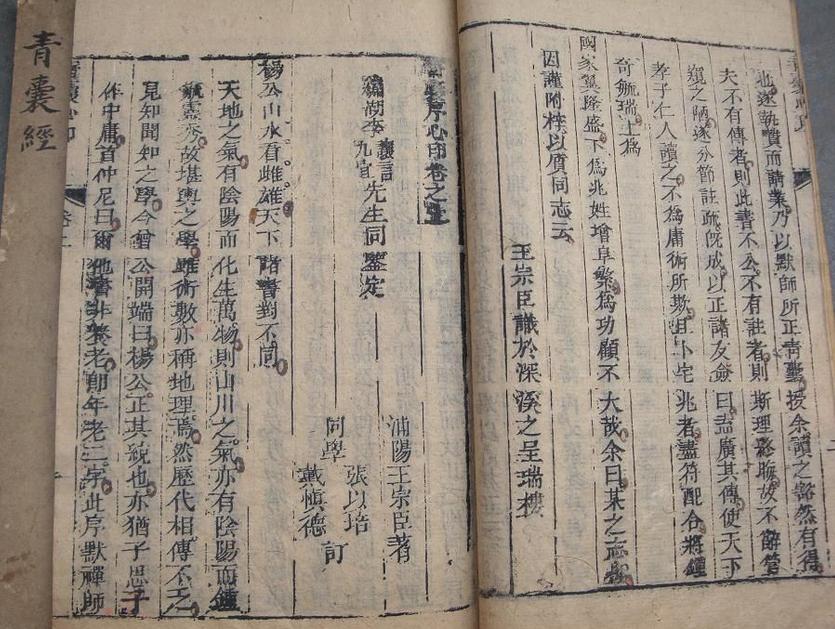 青囊心印
也遂執贄而請業乃以默師所正青囊授余讀之豁然有得
夫不有傳者則此書不公不有註者則斯理影晦故不辭管
窺之陋遂分節註疏旣成以正諸友僉曰盍廣其傳使天下
孝子仁人讀之不為庸術所欺且卜宅兆者盡符配合將鐘
奇毓瑞上為
國家翼隆盛下為兆姓增阜繁為功顧不大哉余曰某之志也
因謹附梓以質同志云
王宗臣識於深溪之呈瑞樓
青囊序心印卷之上
繡湖李九宜先生同鑒定
浦陽王宗臣著
張以培
同學 訂
戴慎德
楊公山水看雌雄天下諸書對不同
天地之氣有陰陽而化生萬物則山川之氣亦有陰陽而鐘
毓靈秀故堪輿之學雖術數亦稱地理焉然歷代相傳不乏
見知聞知之學今曾公開端曰楊公正其統也亦猶子思子
作中庸首仲尼曰爾他書非養老卽年老二字此序默禪師
青囊心印
青囊經